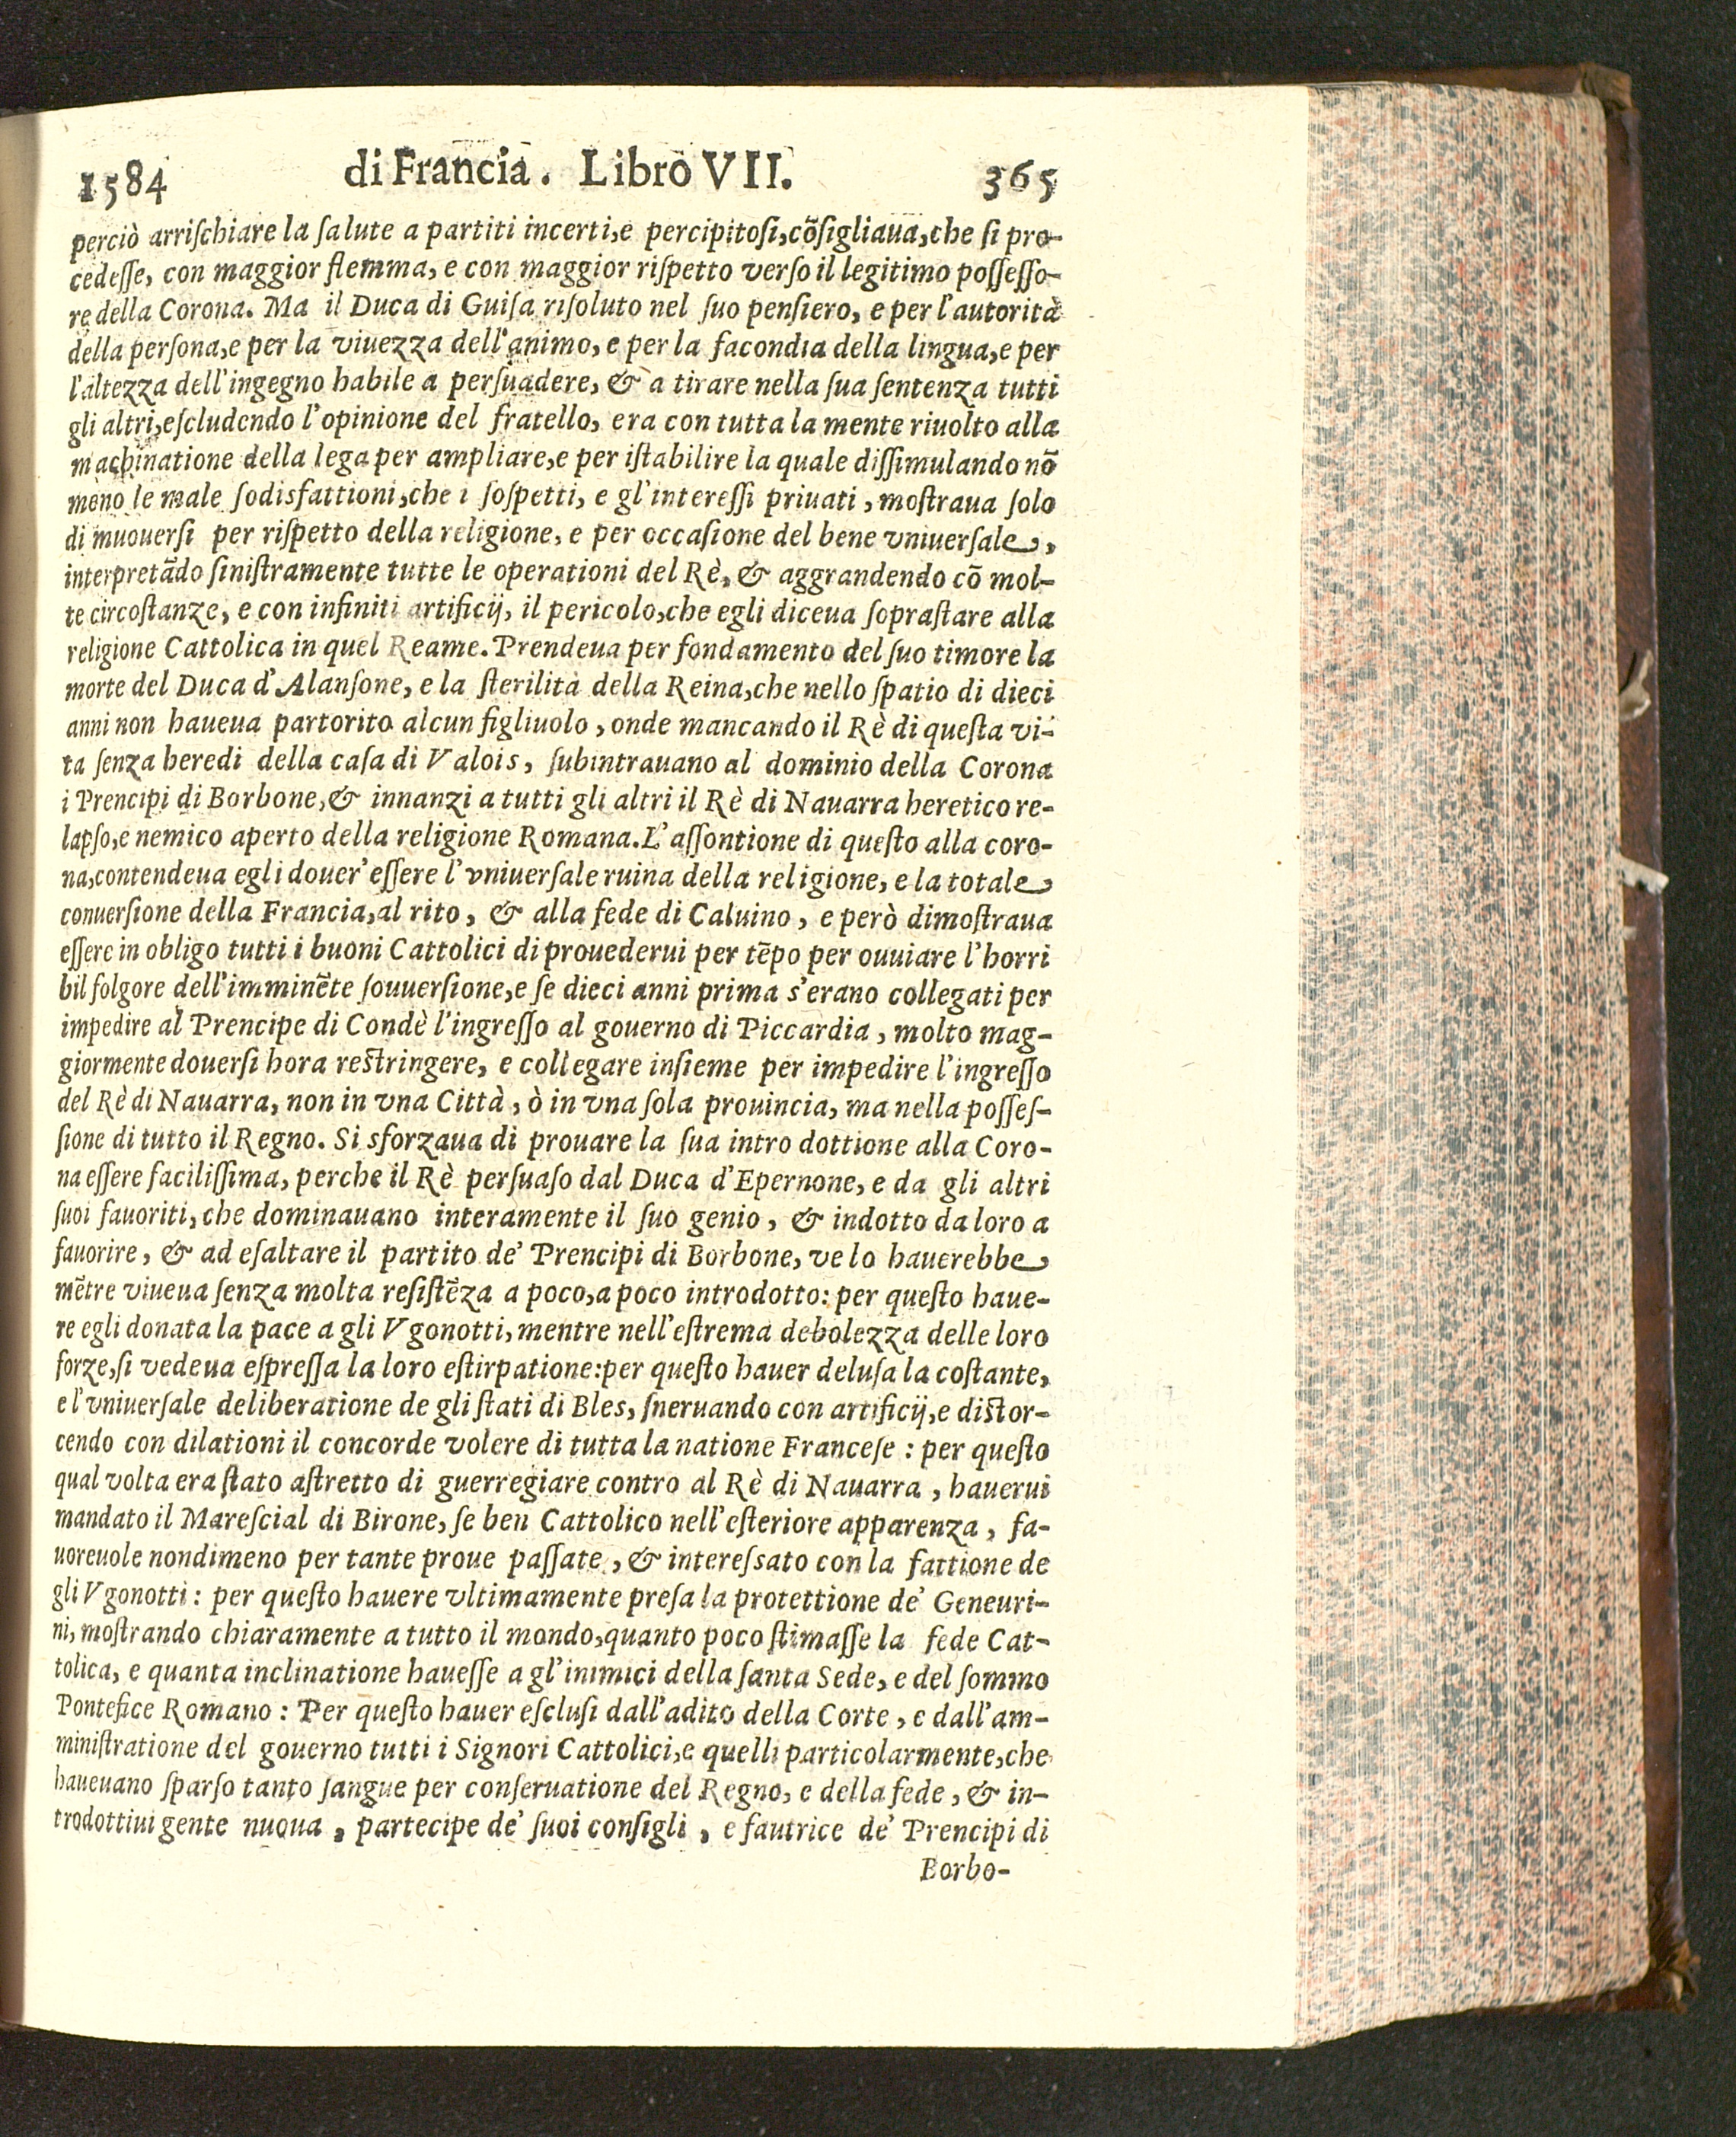 1584 di Francia. Libro VII. 365
perciò arriſchiare la ſalute a partiti incerti,e percipitoſi,cõſigliaua,che ſi pro-
cedeſſe, con maggior flemma, e con maggior riſpetto verſo il legitimo poſſeſſo-
re della Corona. Ma il Duca di Guiſa riſoluto nel ſuo penſiero, e per l'autorità
della perſona,e per la viuezza dell'animo, e per la facondia della lingua,e per
l'altezza dell'ingegno habile a perſuadere, & a tirare nella ſua ſentenza tutti
gli altri,eſcludendo l'opinione del fratello, era con tutta la mente riuolto alla
machinatione della lega per ampliare,e per iſtabilire la quale diſſimulando nõ
meno le male ſodisfattioni,che i ſoſpetti, e gl'intereſſi priuati, moſtraua ſolo
di muouerſi per riſpetto della religione, e per occaſione del bene vniuerſale,
interpretãdo ſiniſtramente tutte le operationi del Rè, & aggrandendo cõ mol-
te circoſtanze, e con infiniti artificij, il pericolo,che egli diceua ſopraſtare alla
religione Cattolica in quel Reame. Prendeua per fondamento del ſuo timore la
morte del Duca d'Alanſone, e la ſterilità della Reina,che nello ſpatio di dieci
anni non haueua partorito alcun figliuolo, onde mancando il Rè di queſta vi-
ta ſenza heredi della caſa di Valois, ſubintrauano al dominio della Corona
i Prencipi di Borbone,& innanzi a tutti gli altri il Rè di Nauarra heretico re-
lapſo,e nemico aperto della religione Romana. L'aſſontione di queſto alla coro-
na,contendeua egli douer'eſſere l'vniuerſale ruina della religione, e la totale
conuerſione della Francia,al rito, & alla fede di Caluino, e però dimoſtraua
eſſere in obligo tutti i buoni Cattolici di prouederui per tẽpo per ouuiare l'horri
bil folgore dell'imminẽte ſouuerſione,e ſe dieci anni prima s'erano collegati per
impedire al Prencipe di Condè l'ingreſſo al gouerno di Piccardia, molto mag-
giormente douerſi hora reſtringere, e collegare inſieme per impedire l'ingreſſo
del Rè di Nauarra, non in vna Città, ò in vna ſola prouincia, ma nella poſſeſ-
ſione di tutto il Regno. Si sforzaua di prouare la ſua intro dottione alla Coro-
na eſſere faciliſſima, perche il Rè perſuaſo dal Duca d'Epernone, e da gli altri
ſuoi fauoriti, che dominauano interamente il ſuo genio, & indotto da loro a
fauorire, & ad eſaltare il partito de' Prencipi di Borbone, ve lo hauerebbe
mẽtre viueua ſenza molta reſiſtẽza a poco,a poco introdotto: per queſto haue-
re egli donata la pace a gli Vgonotti, mentre nell'eſtrema debolezza delle loro
forze,ſi vedeua eſpreſſa la loro eſtirpatione:per queſto hauer deluſa la coſtante,
e l'vniuerſale deliberatione de gli ſtati di Bles, ſneruando con artificij,e diſtor-
cendo con dilationi il concorde volere di tutta la natione Franceſe: per queſto
qual volta era ſtato aſtretto di guerregiare contro al Rè di Nauarra, hauerui
mandato il Mareſcial di Birone, ſe ben Cattolico nell'eſteriore apparenza, fa-
uoreuole nondimeno per tante proue paſſate, & intereſsato con la fattione de
gli Vgonotti: per queſto hauere vltimamente preſa la protettione de' Geneuri-
ni, moſtrando chiaramente a tutto il mondo,quanto poco ſtimaſſe la fede Cat-
tolica, e quanta inclinatione haueſſe a gl'inimici della ſanta Sede, e del ſommo
Pontefice Romano: Per queſto hauer eſcluſi dall'adito della Corte, e dall'am-
miniſtratione del gouerno tutti i Signori Cattolici,e quelli particolarmente,che
haueuano ſparſo tanto ſangue per conſeruatione del Regno, e della fede, & in-
trodottiui gente nuoua, partecipe de' ſuoi conſigli, e fautrice de' Prencipi di
Borbo-